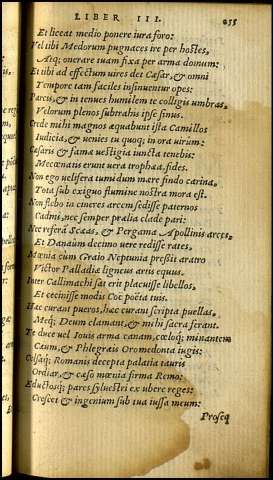 LIBER III. 235
Et liceat medio ponere iura foro:
Vel tibi Medorum pugnaces ire per hostes,
Atq; onerare tuam fixa per arma domum:
Et tibi ad effectum uires det Cæsar, & omni
Tempore tam faciles insinuentur opes:
Parcis, & in tenues humilem te colligis umbras,
Velorum plenos subtrahis ipse sinus.
Crede mihi magnos æquabunt ista Camillos
Iudicia, & uenies tu quoq; in ora uirum:
Cæsaris & famæ uestigia iuncta tenebis:
Mecœnatis erunt uera trophæa, fides.
Non ego uelifera tumidum mare findo carina,
Tota sub exiguo flumine nostra mora est.
Non flebo in cineres arcem sedisse paternos
Cadmi, nec semper prælia clade pari:
Nec referā Scæas, & Pergama Apollinis arces,
Et Danaûm decimo uere redisse rates,
Mœnia cum Graio Neptunia pressit aratro
Victor Palladiæ ligneus artis equus.
Inter Callimachi sat erit placuisse libellos,
Et cecinisse modis Coe poëta tuis.
Hæc curant pueros, hæc curant scripta puellas,
Meq; Deum clamant, & mihi sacra ferant.
Te duce uel Iouis arma canam, cœloq; minantem
Cæum, & Phlegræis Oromedonta iugis:
Celsaq; Romanis decepta palatia tauris
Ordiar, & cæso mœnia firma Remo:
Eductosq; pares syluestri ex ubere reges:
Crescet & ingenium sub tua iussa meum:
Proseq